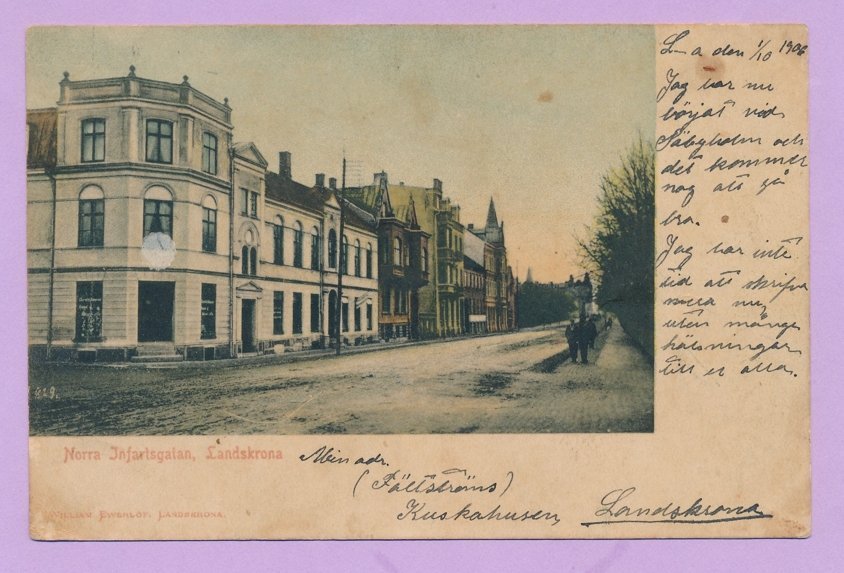 L-a den 1/10 1906
Jag har nu
börjat vid
Säbyholm och
det kommer
nog att gå
bra.
Jag har inte
tid att skrifva
mera nu,
utan många
hälsningar
till er alla.
Norra Infartsgatan, Landskrona
Min adr.
(Fältströms)
Kuskahusen,
Landskrona
WILLIAM EWERLÖF, LANDSKRONA.